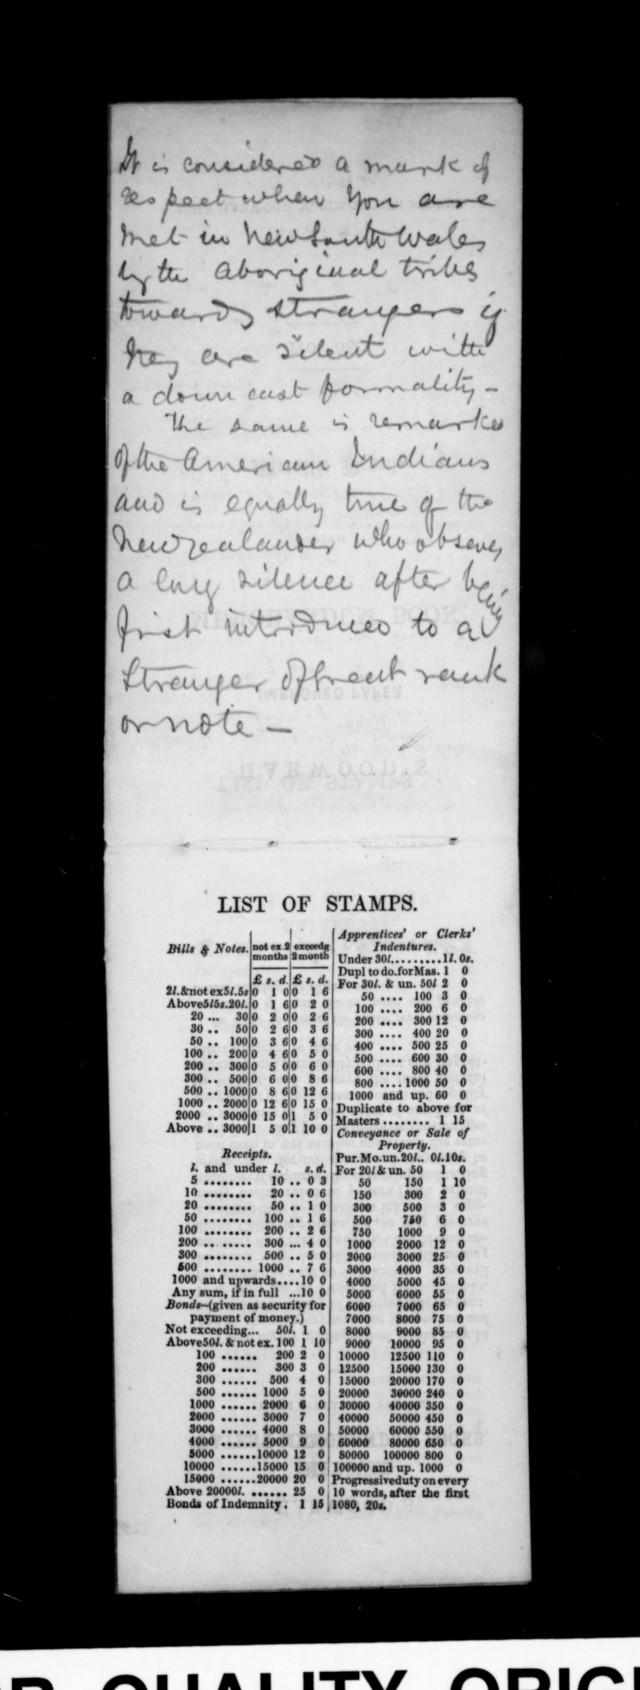 It is considered a mark of
respect when you are
met in New South Wales
by the aboriginal tribes
towards strangers if
they are silent with
a down cast formality –
The same is remarked
of the American Indians
and is equally true of the
New Zealander who observes
a long silence after being
first introduced to a
Stranger of great rank
or note –
HARWOOD'S
LIST OF STAMPS.
Bills & Notes. not ex. 2 months exceedg 2 month
£ s. d. £ s. d.
2l. & not ex 5l. 5s 0 1 0 0 1 6
Above 5l 5s. 20l. 0 1 6 0 2 0
20 ... 30 0 2 0 0 2 6
30 .. 50 0 2 6 0 3 6
50 .. 100 0 3 6 0 4 6
100 .. 200 0 4 6 0 5 0
200 .. 300 0 5 0 0 6 0
300 .. 500 0 6 0 0 8 6
500 .. 1000 0 8 6 0 12 6
1000 .. 2000 0 12 6 0 15 0
2000 .. 3000 0 15 0 1 5 0
Above .. 3000 1 5 0 1 10 0
Receipts.
l. and under l. s. d.
5 ........ 10 .. 0 3
10 ........ 20 .. 0 6
20 ........ 50 .. 1 0
50 ........ 100 .. 1 6
100 ........ 200 .. 2 6
200 ........ 300 ... 4 0
300 ........ 500 .. 5 0
500 ........ 1000 .. 7 6
1000 and upwards.... 10 0
Any sum, if in full ... 10 0
Bonds—(given as security for
payment of money.)
Not exceeding... 50l. 1 0
Above 50l. & not ex. 100 1 10
100 ...... 200 2 0
200 ...... 300 3 0
300 ...... 500 4 0
500 ...... 1000 5 0
1000 ...... 2000 6 0
2000 ...... 3000 7 0
3000 ...... 4000 8 0
4000 ...... 5000 9 0
5000 ...... 10000 12 0
10000 ...... 15000 15 0
15000 ...... 20000 20 0
Above 20000l. ...... 25 0
Bonds of Indemnity. 1 15
Apprentices' or Clerks'
Indentures.
Under 30l......... 1l. 0s.
Dupl to do. for Mas. 1 0
For 30l. & un. 50l 2 0
50 .... 100 3 0
100 .... 200 6 0
200 .... 300 12 0
300 .... 400 20 0
400 .... 500 25 0
500 .... 600 30 0
600 .... 800 40 0
800 .... 1000 50 0
1000 and up. 60 0
Duplicate to above for
Masters ........ 1 15
Conveyance or Sale of
Property.
Pur. Mo. un. 20l.. 0l. 10s.
For 20l & un. 50 1 0
50 150 1 10
150 300 2 0
300 500 3 0
500 750 6 0
750 1000 9 0
1000 2000 12 0
2000 3000 25 0
3000 4000 35 0
4000 5000 45 0
5000 6000 55 0
6000 7000 65 0
7000 8000 75 0
8000 9000 85 0
9000 10000 95 0
10000 12500 110 0
12500 15000 130 0
15000 20000 170 0
20000 30000 240 0
30000 40000 350 0
40000 50000 450 0
50000 60000 550 0
60000 80000 650 0
80000 100000 800 0
100000 and up. 1000 0
Progressive duty on every
10 words, after the first
1080, 20s.
QUALITY